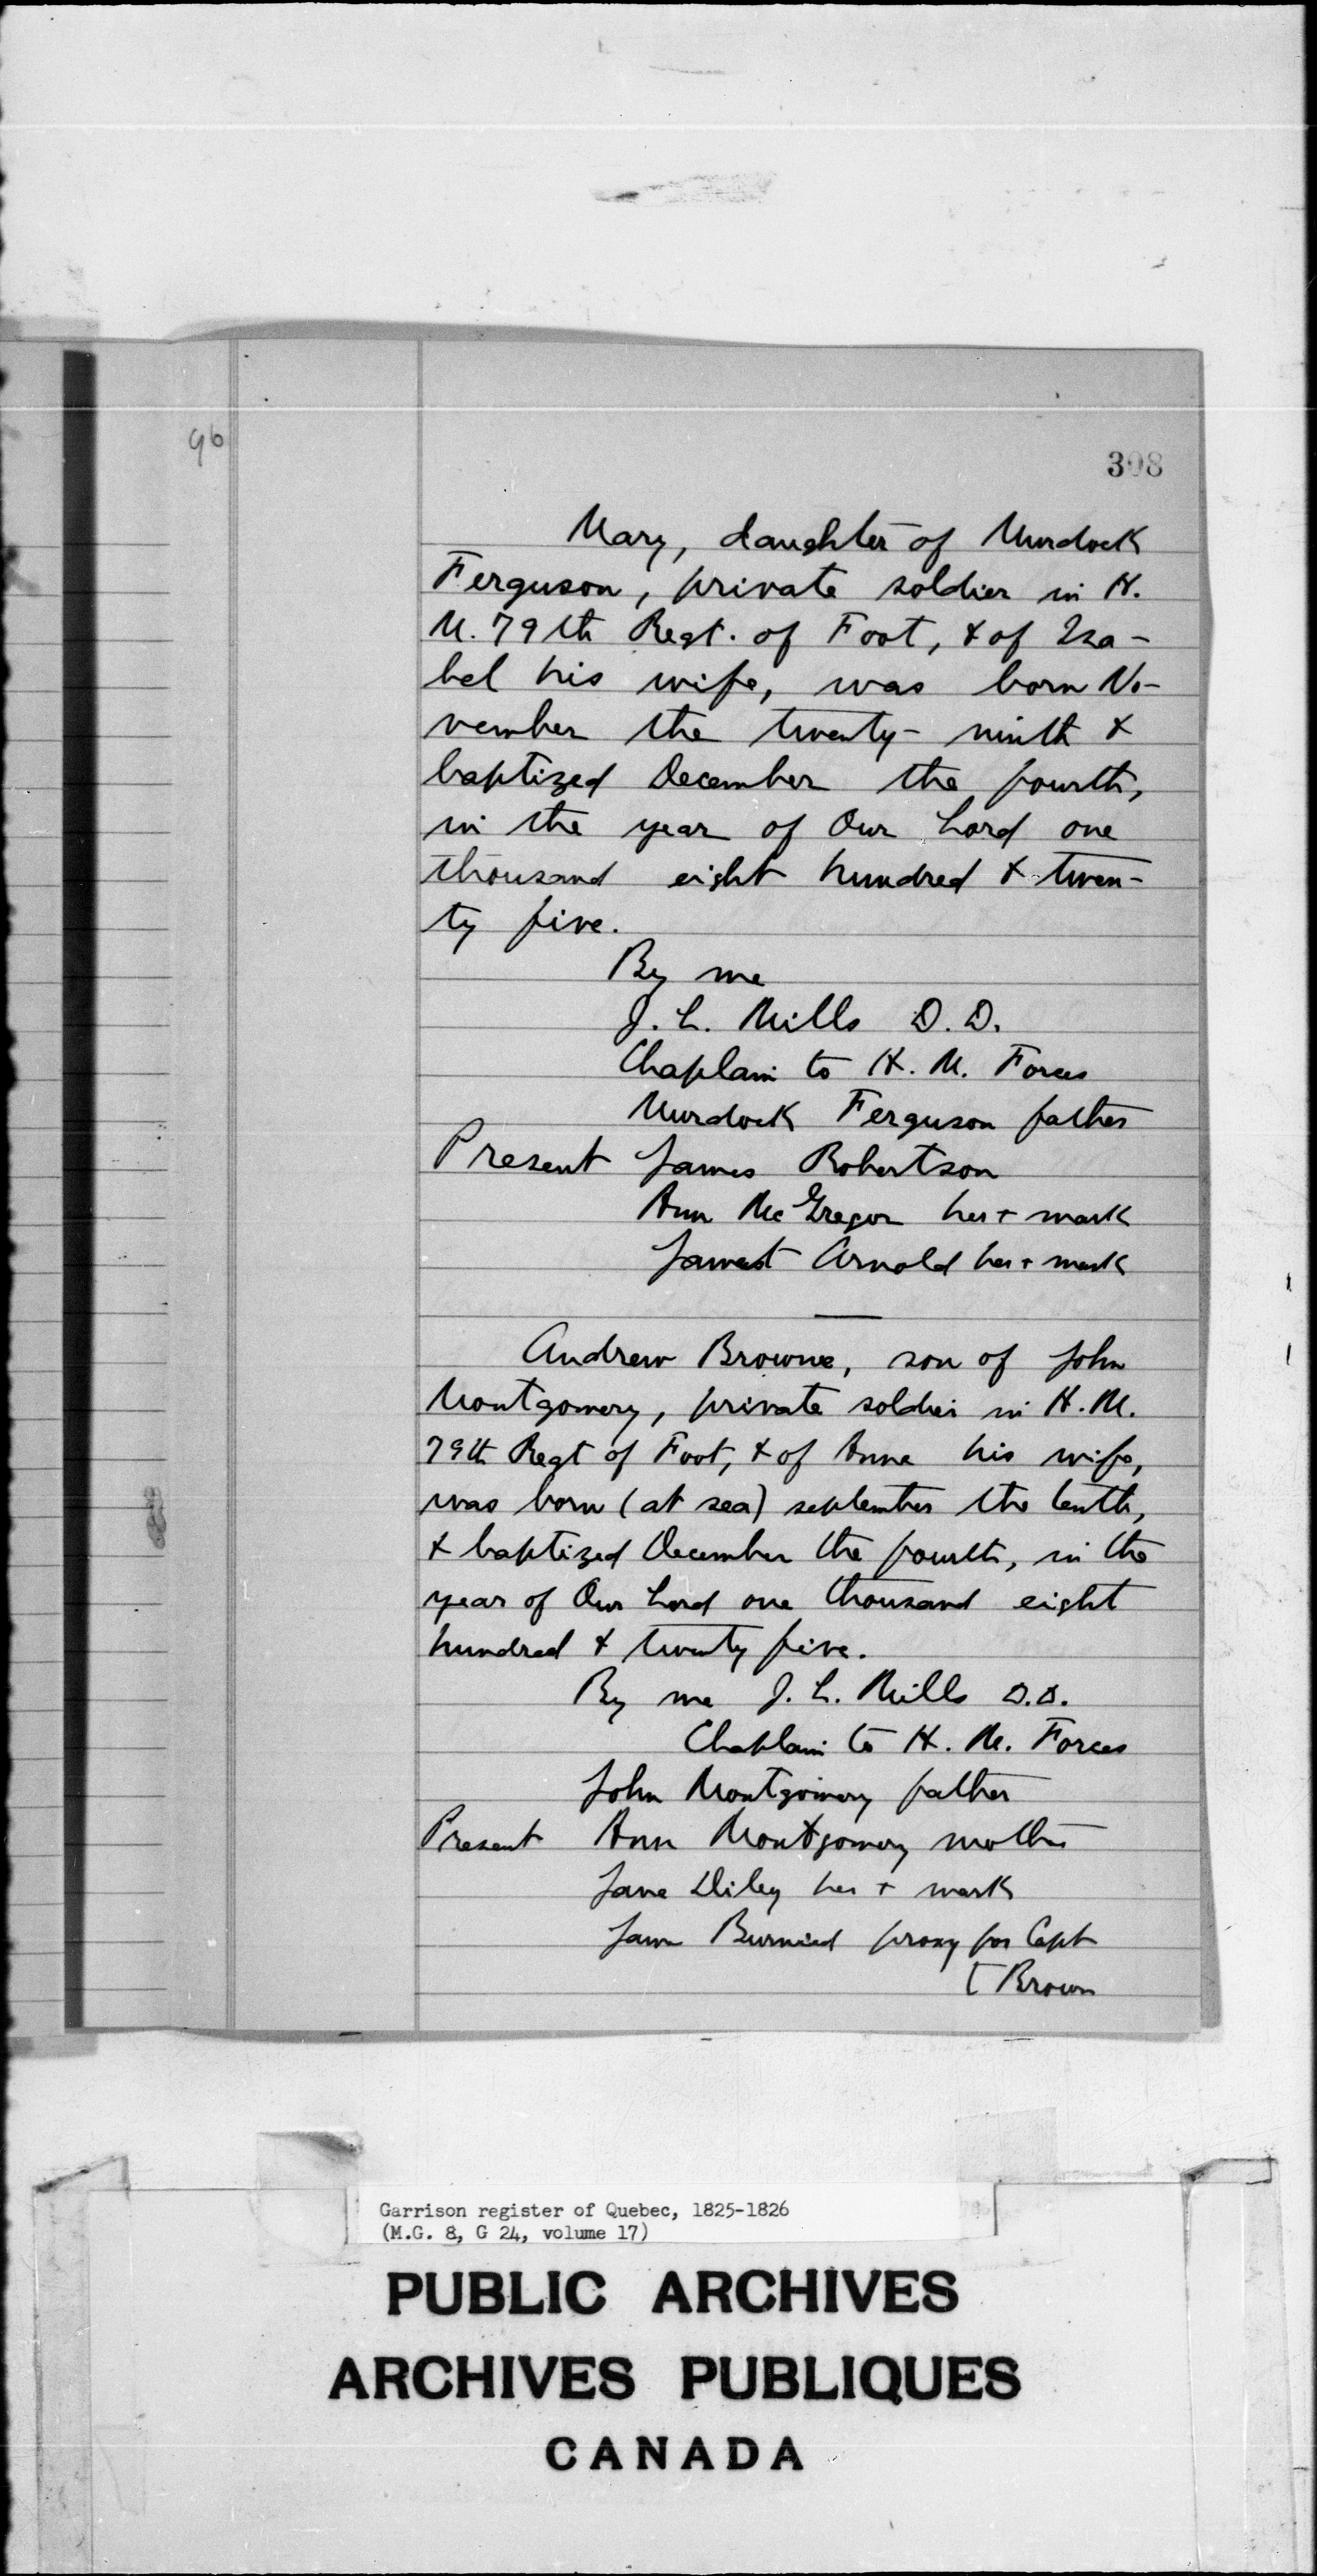 96
308
Mary, daughter of Murdock
Ferguson, private soldier in H.
M. 79th Regt. of Foot, & of Isa-
bel his wife, was born No-
vember the twenty-ninth &
baptized December the fourth,
in the year of Our Lord one
thousand eight hundred & twen-
ty five.
By me
J. L. Mills D.D.
Chaplain to H. M. Forces
Murdock Ferguson father
Present James Robertson
Ann McGregor her + mark
Arnold her + mark
Andrew Browne, son of John
Montgomery, private soldier in H.M.
79th Regt of Foot, & of Anne his wife,
was born (at sea) september the tenth,
& baptized December the fourth, in the
year of Our Lord one thousand eight
hundred & twenty five.
By me J. L. Mills D.D.
Chaplain to H. M. Forces
John Montgomery father
Present Ann Montgomery mother
Jane Diley her + mark
proxy for Capt
[ Brown
Garrison register of Quebec, 1825-1826
(M.G. 8, G 24, volume 17)
PUBLIC ARCHIVES
ARCHIVES PUBLIQUES
CANADA